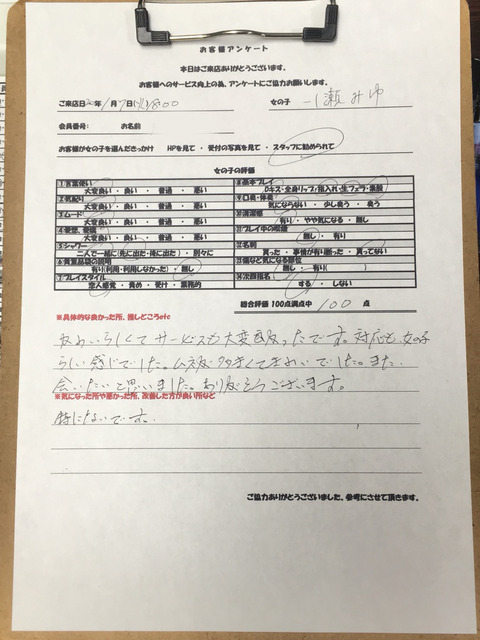 お客様アンケート
本日はご来店ありがとうございます。
お客様へのサービス向上の為、アンケートにご協力お願いします。
ご来店日 年 1月 7日 18:00 女の子 一ノ瀬みゆ
会員番号: お名前
お客様が女の子を選んだきっかけ HPを見て ・ 受付の写真を見て ・ スタッフに勧められて
女の子の評価
①言葉使い
大変良い ・ 良い ・ 普通 ・ 悪い
②気配り
大変良い ・ 良い ・ 普通 ・ 悪い
③ムード
大変良い ・ 良い ・ 普通 ・ 悪い
④愛想、愛嬌
大変良い ・ 良い ・ 普通 ・ 悪い
⑤シャワー
二人で一緒に(先に出た・後に出た) ・ 別々に
※貴重品袋の説明
有り(利用・利用しなかった) ・ 無し
⑦プレイスタイル
恋人感覚 ・ 責め ・ 受け ・ 業務的
⑧基本プレイ
Dキス・全身リップ・指入れ・生フェラ・素股
⑨口臭・体臭
気にならない ・ 少し臭う ・ 臭う
⑩清潔感
有り ・ やや気になる ・ 無し
⑪プレイ中の喫煙
無し ・ 有り
⑫名刺
貰った ・ 事情が有り断った ・ 貰ってない
⑬傷など気になる部位
無し ・ 有り( )
⑭次回指名
する ・ しない
総合評価 100点満点中 100 点
※具体的な良かった所、推しどころetc
かわいらしくてサービスも大変良かったです。対応も女の子
らしい感じでした。
会いたいと思いました。ありがとうございます。
※気になった所や悪かった所、改善した方が良い所など
特にないです。
ご協力ありがとうございました、参考にさせて頂きます。